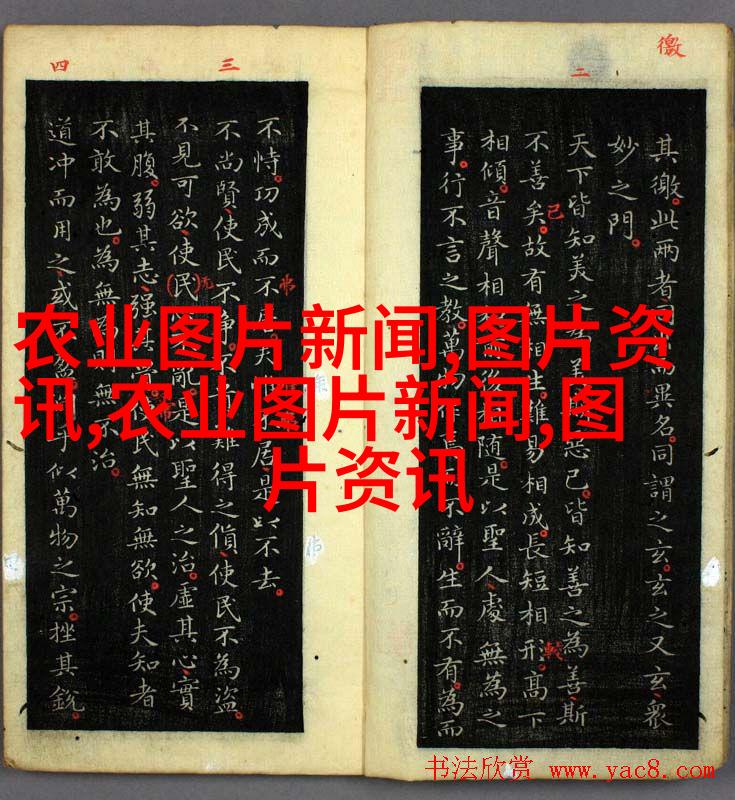 农业图片新闻,图片资
讯,农业图片新闻,图
片资讯
徼
二
其徼。此两者同而異名。同謂之玄。玄之又玄。衆
妙之門。
天下皆知美之惡已。皆知善之為善斯
不善矣。故有無相生。難易相成。長短相形。高下
相傾。音聲相随。是以聖人處無為之
事。行不言之教。萬作不辭。生而不有。為而
己
較
三
四
不恃。功成而不居。是以不去。
不尚賢。使民不争。難得之貨。使民不為盗。
不見可欲。使(民)亂。是以聖人之治。虛其心。實
其腹。弱其志。强民無知無欲。使夫知者
不敢為也。為無為無不治。
道冲而用之。或乎似萬物之宗。挫其銳。
书法欣赏 www.yac8.com